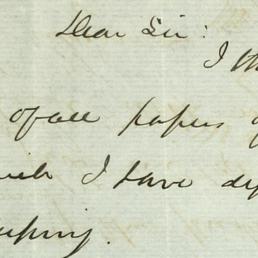 Dear Sir:
I th
of all papers
I have de